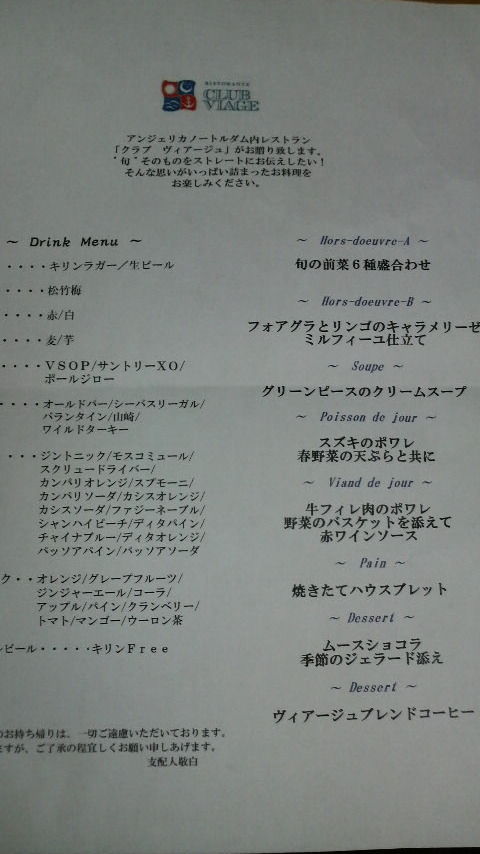 RISTORANTE
CLUB
VIAGE
アンジェリカノートルダム内レストラン
「クラブ ヴィアージュ」がお贈り致します。
"旬"そのものをストレートにお伝えしたい！
そんな思いがいっぱい詰まったお料理を
お楽しみください。
～ Drink Menu ～
・・・・キリンラガー／生ビール
・・・・・松竹梅
・・・・・赤/白
・・・・・麦/芋
・・・・・ＶＳＯＰ/サントリーＸＯ/
ポールジロー
・・・・・オールドパー/シーバスリーガル/
バランタイン/山崎/
ワイルドターキー
・・・・ジントニック/モスコミュール/
スクリュードライバー/
カンパリオレンジ/スプモーニ/
カンパリソーダ/カシスオレンジ/
カシスソーダ/ファジーネーブル/
シャンハイビーチ/ディタパイン/
チャイナブルー/ディタオレンジ/
パッソアパイン/パッソアソーダ
ク・・オレンジ/グレープフルーツ/
ジンジャーエール/コーラ/
アップル/パイン/クランベリー/
トマト/マンゴー/ウーロン茶
ルビール・・・・・キリンＦｒｅｅ
のお持ち帰りは、一切ご遠慮いただいております。
ますが、ご了承の程宜しくお願い申しあげます。
支配人敬白
～ Hors-doeuvre-A ～
旬の前菜６種盛合わせ
～ Hors-doeuvre-B ～
フォアグラとリンゴのキャラメリーゼ
ミルフィーユ仕立て
～ Soupe ～
グリーンピースのクリームスープ
～ Poisson de jour ～
スズキのポワレ
春野菜の天ぷらと共に
～ Viand de jour ～
牛フィレ肉のポワレ
野菜のバスケットを添えて
赤ワインソース
～ Pain ～
焼きたてハウスブレット
～ Dessert ～
ムースショコラ
季節のジェラード添え
～ Dessert ～
ヴィアージュブレンドコーヒー